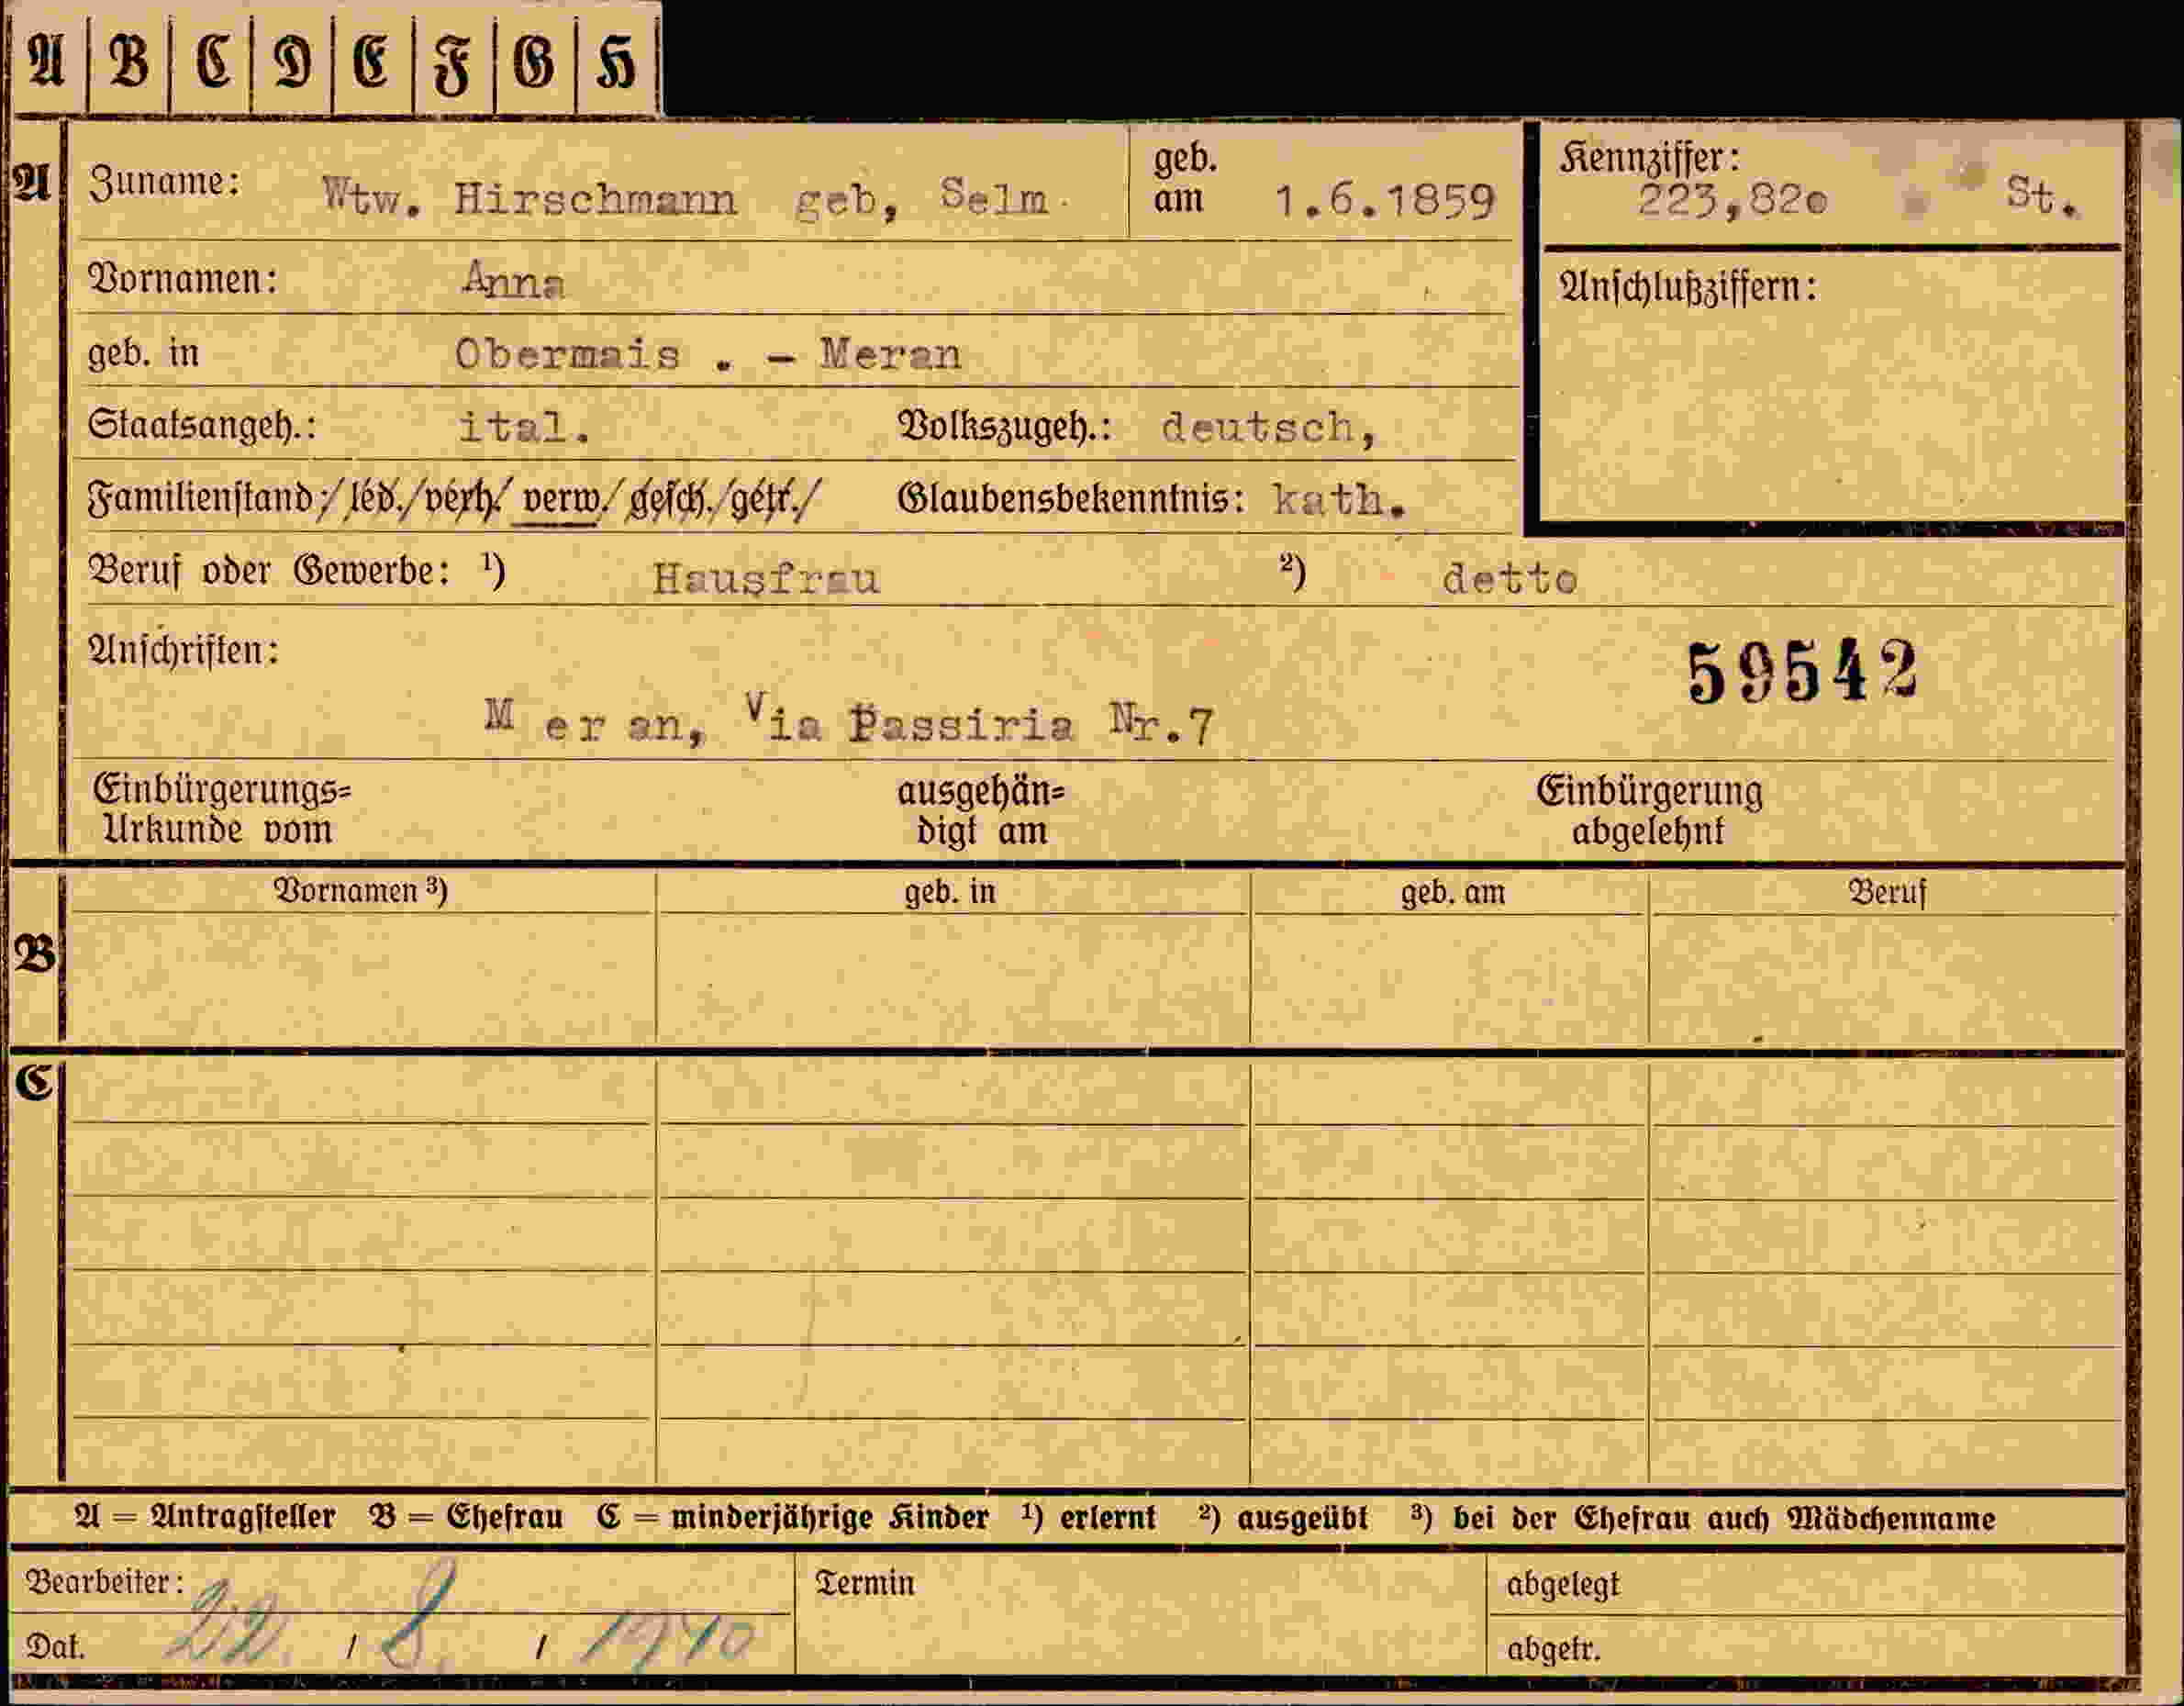 A B C D E F G H
A Zuname: Wtw. Hirschmann geb, Selm. geb. am 1.6.1859 Kennziffer: 223,82o St.
Vornamen: Anna Anschlußziffern:
geb. in Obermais . - Meran
Staatsangeh.: ital. Volkszugeh.: deutsch,
Familienstand:/led./verh/ verw/ gesch./getr./ Glaubensbekenntnis: kath.
Beruf oder Gewerbe: ¹) Hausfrau ²) detto
Anschriften: 59542
M er an, Via Passiria Nr.7
Einbürgerungs= ausgehän= Einbürgerung
Urkunde vom digt am abgelehnt
B Vornamen ³) geb. in geb. am Beruf
C
A = Antragsteller B = Ehefrau C = minderjährige Kinder ¹) erlernt ²) ausgeübt ³) bei der Ehefrau auch Mädchenname
Bearbeiter: Termin abgelegt
Dat. 22. / 8. / 1940 abgetr.